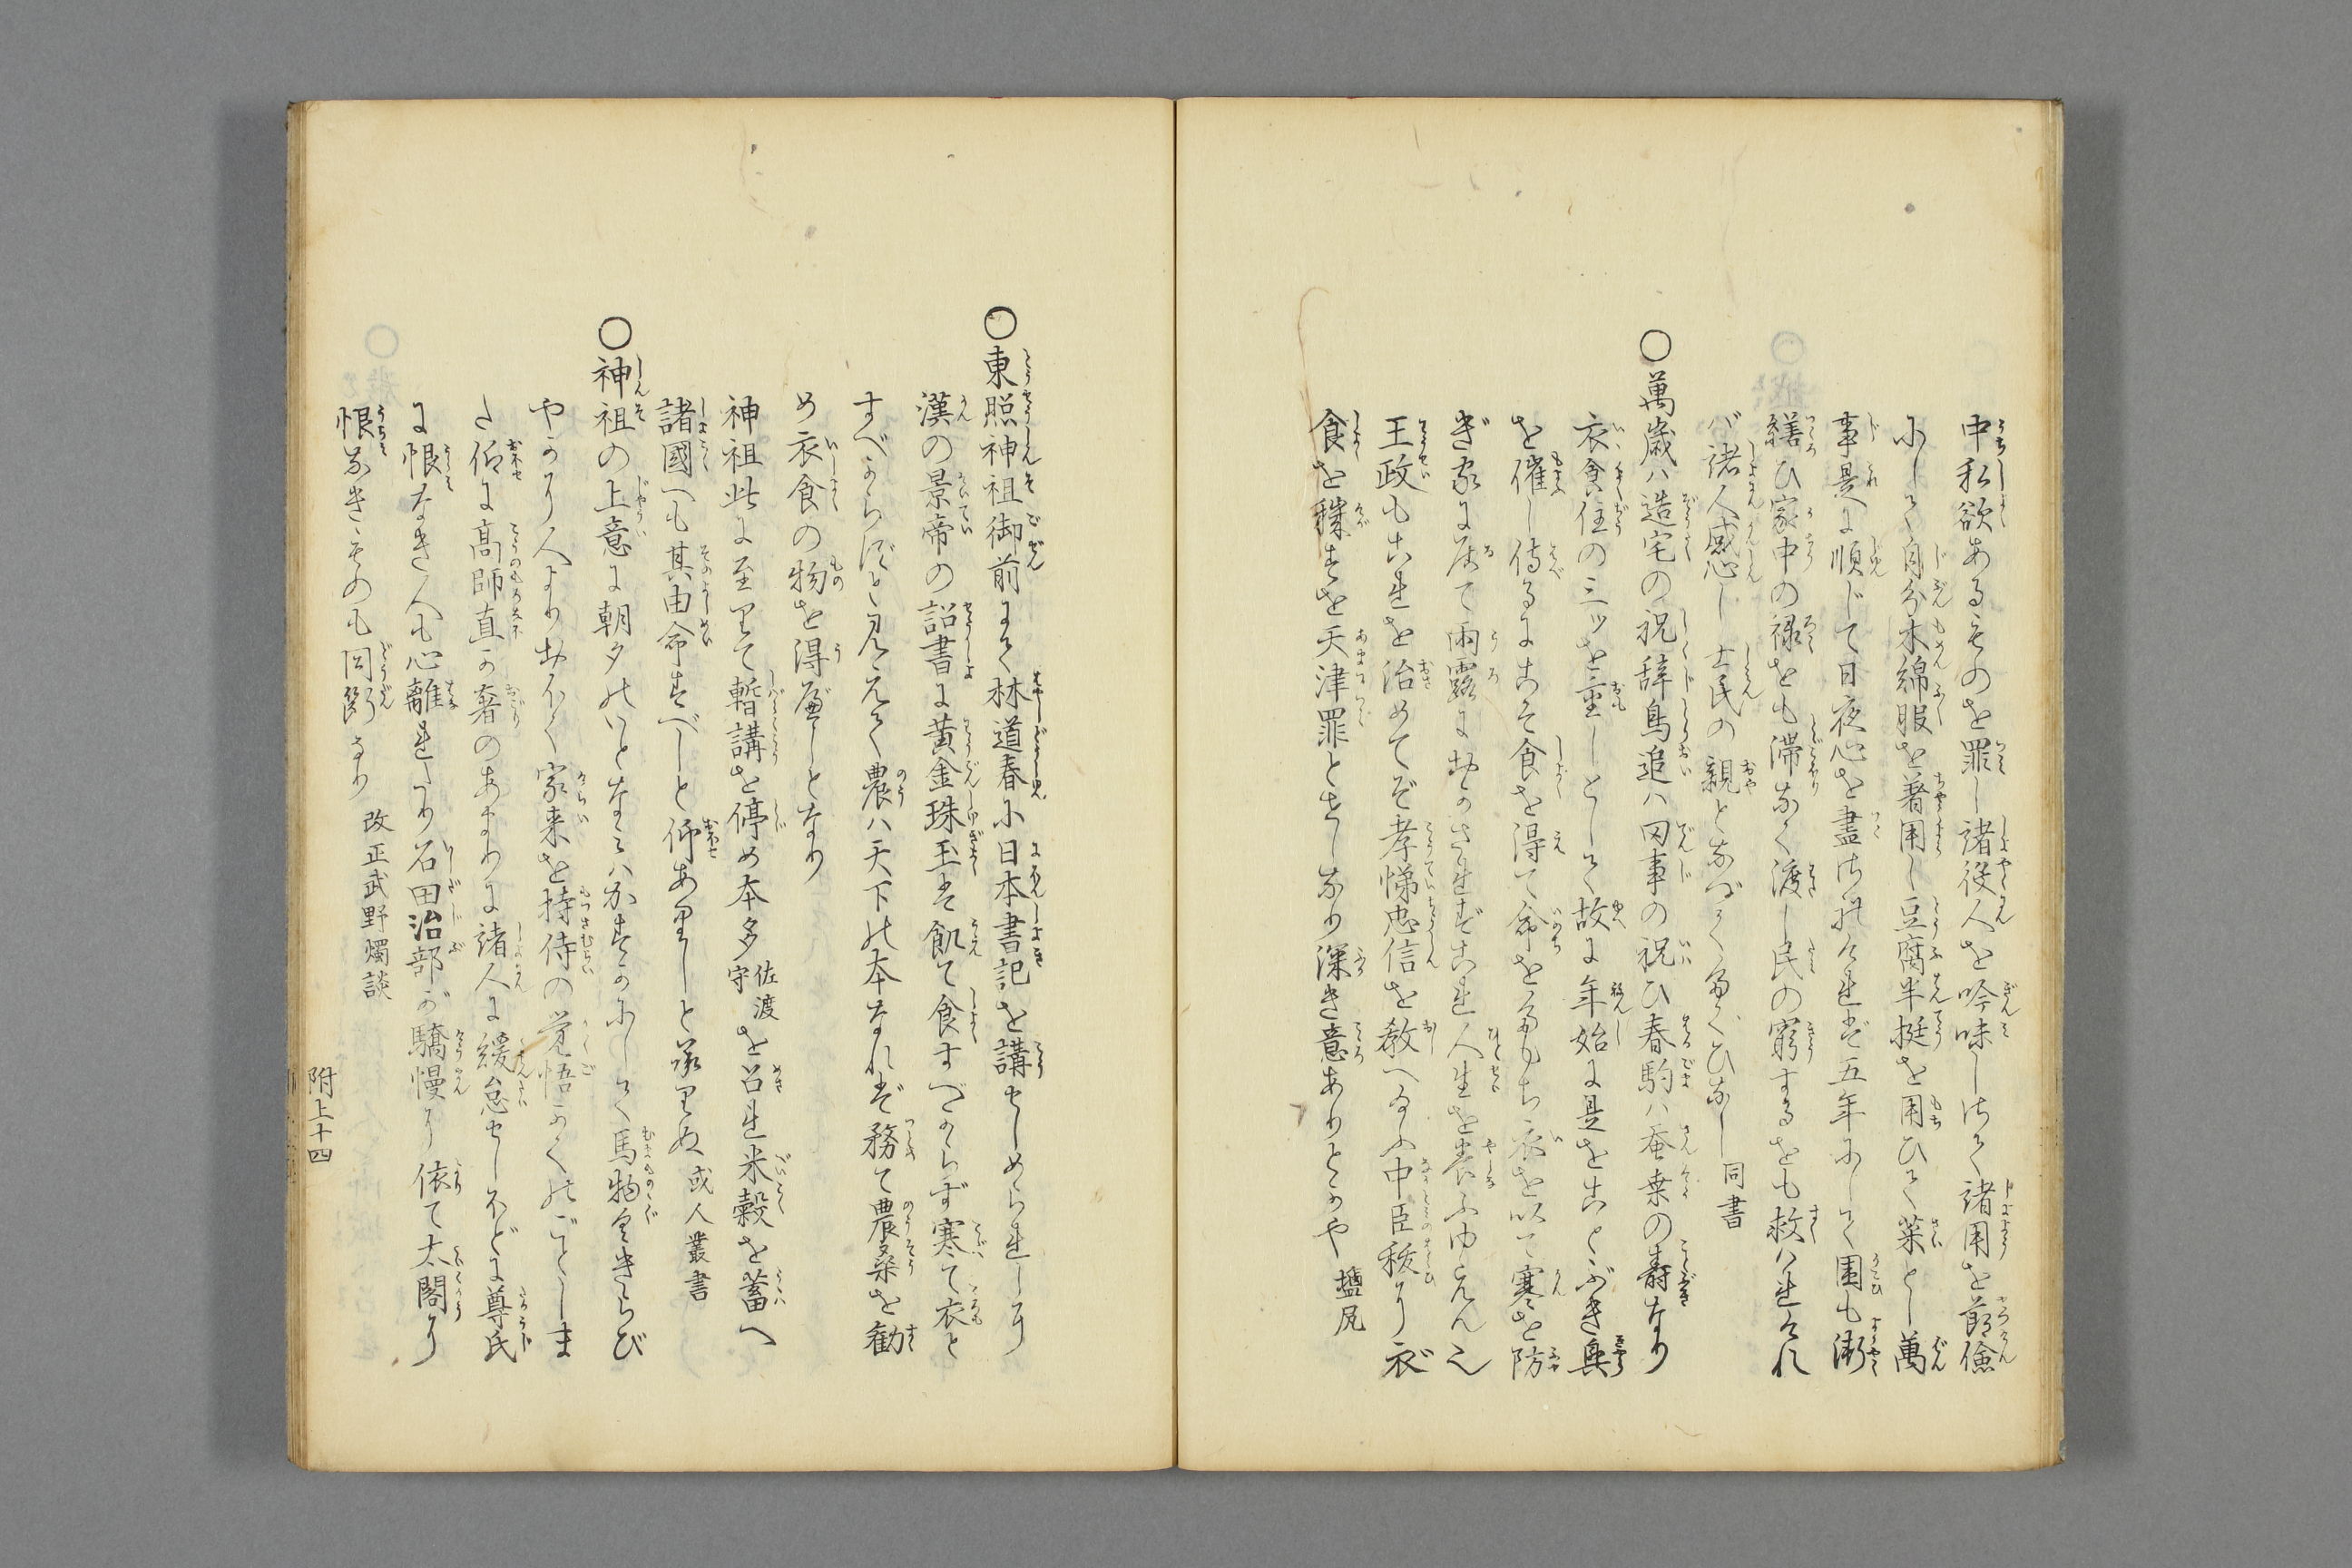 中私欲あるものを罪し諸役人を吟味しけて諸用を節儉
にして自分木綿服を著用し豆腐半挺を用ひて菜とし萬
事是に順じて日夜心を盡けれければ五年にして國も漸
繕ひ家中の祿をも滞なく渡し民の窮するをも救はれけれ
バ諸人感心し士民の親となづくるぐひなし 同書
○萬歳ハ造宅の祝辞鳥追ハ田事の祝ひ春駒ハ蚕桒の壽なり
衣食住の三ツを重しとして故に年始に是をことぶき興
を催し侍るにこそ食を得て命をたもち衣を以て寒を防
ぎ家に居て雨露におかされずこれ人生を養ふゆゑん之
王政もこれを治めてぞ孝悌忠信を敎へ給ふ中臣秡に衣
食を穢すを天津罪とせしなり深き意ありとかや 塩尻
○東照神祖御前にて林道春に日本書記を講せしめられしに
漢の景帝の詔書に黄金珠玉は飢て食すべからず寒て衣と
すべからずと見えて農ハ天下の本なれば務て農桑を勸
め衣食の物を得べしとなり
神祖此に至りて暫講を停め本多佐渡守を召れ米穀を蓄へ
諸國へも其由命すべしと仰ありしと承りぬ 或人叢書
○神祖の上意に朝夕のいとなミハかすかにして馬物具きらび
やかに人よりおほく家来を持侍の覚悟かくのごとしま
た仰に髙師直か奢のあまりに諸人に緩怠せしほどに尊氏
に恨なき人も心離れたり石田治部が驕慢に依て太閤に
恨なきものも同斷なり 改正武野燭談
附上十四